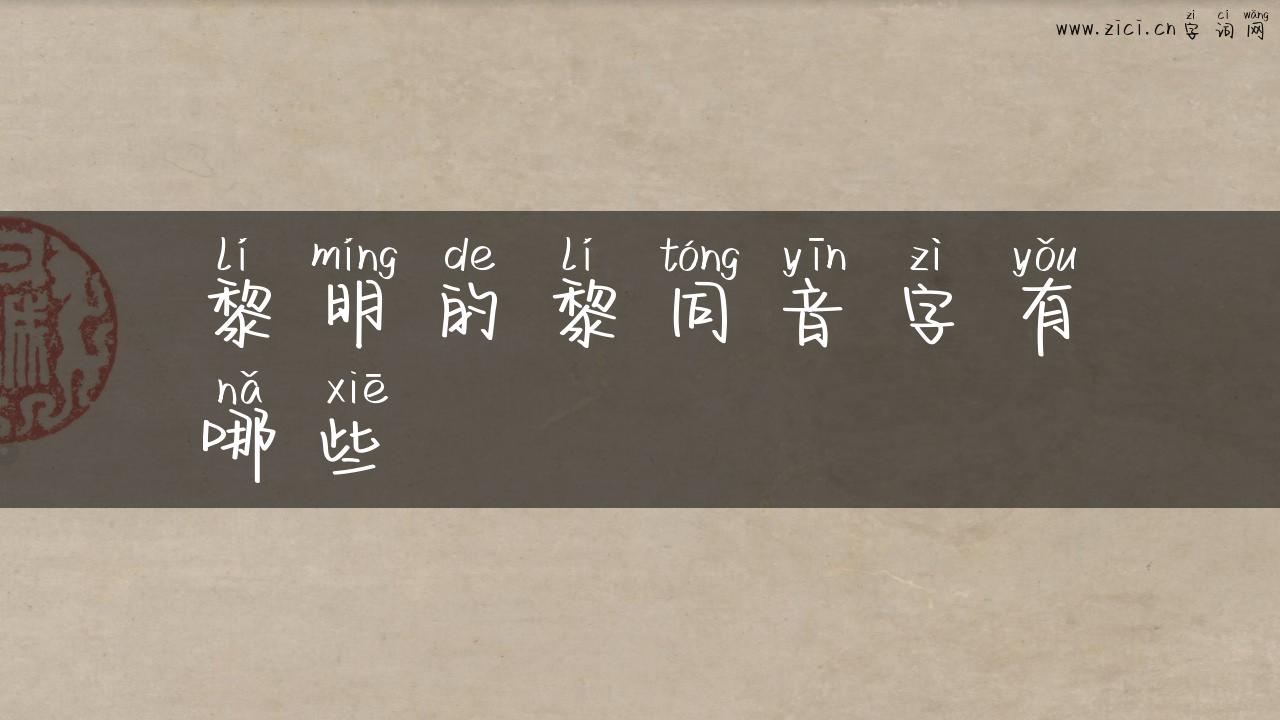 zì cí wǎng
www.zici.cn 字 词 网
lí míng de lí tóng yīn zì yǒu
黎 明 的 黎 同 音 字 有
nǎ xiē
哪 些